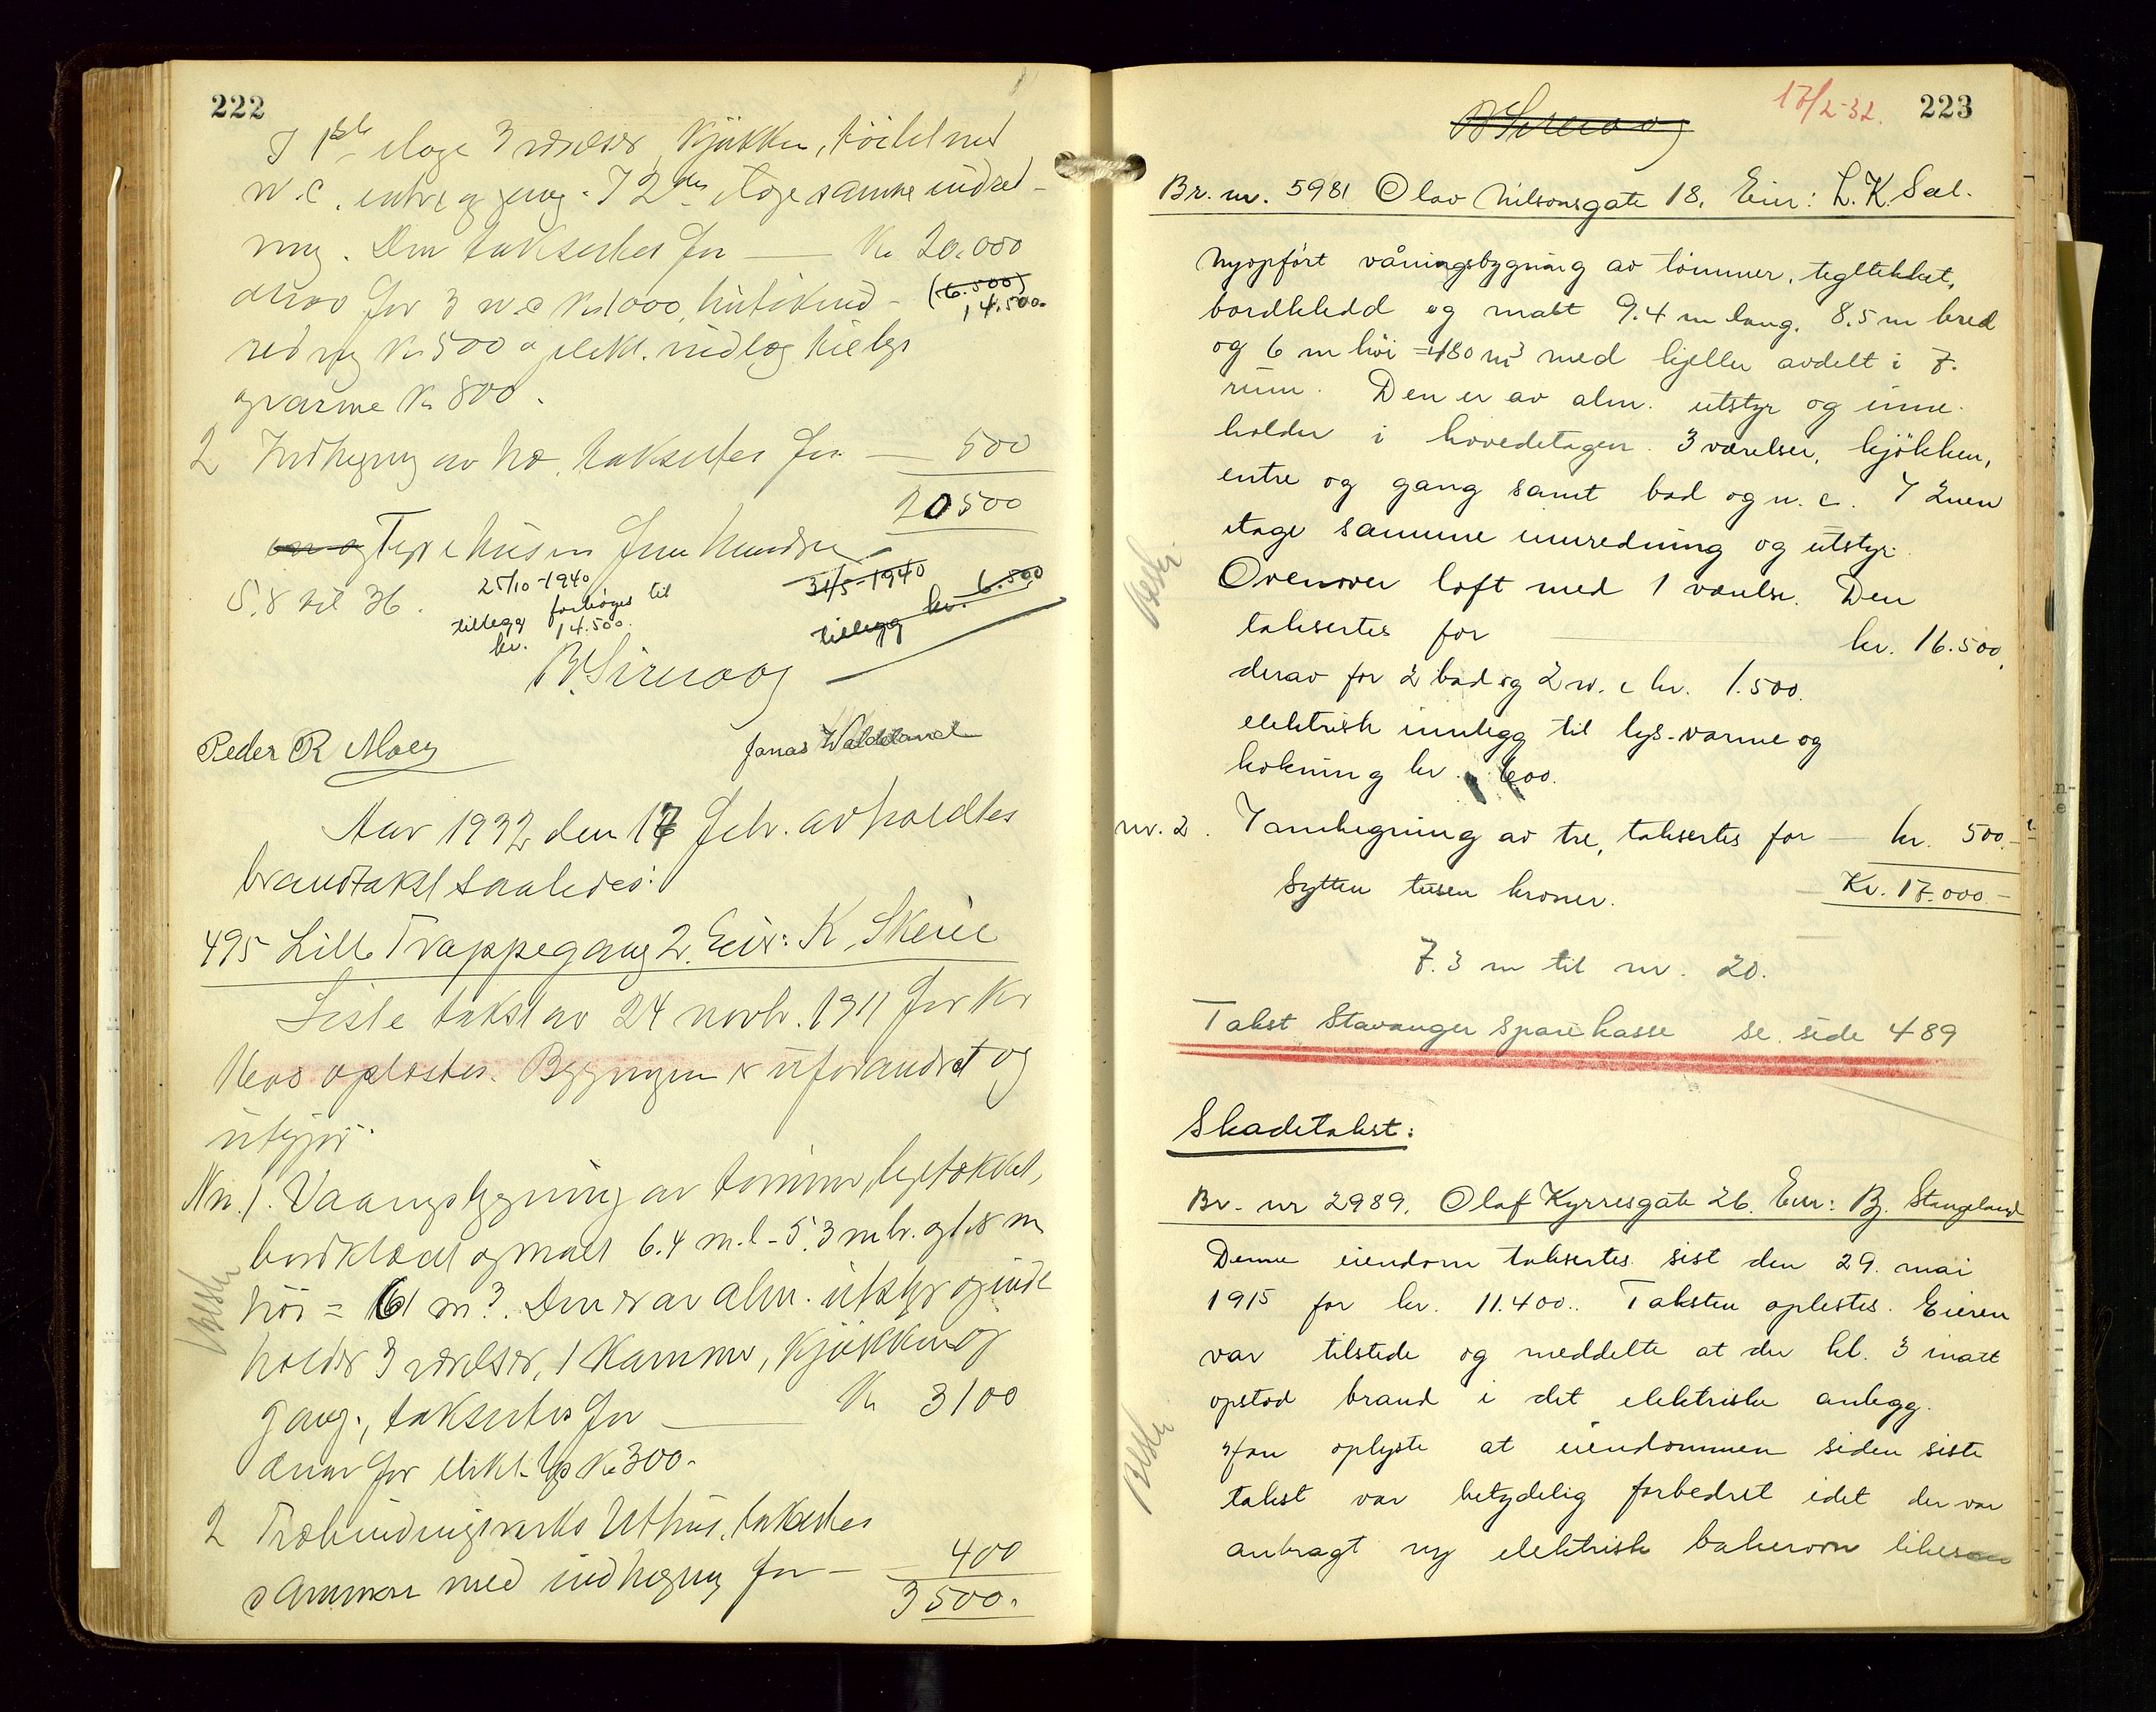 222
I 1ste etage 3 værelser, kjøkken, toilet med
w.c. entre og gang. I 2den etage samme indred-
ning. Den takseres for — Kr. 20.000
derav for 3 w.c Kr 1000,
(6.500)
14.500.
redning Kr 500 og elekt. indlæg til lys
og varme Kr 800.
2 Indhegning av træ, takseres for — 500
20500
Tyve tusen fem hundre
5.8 til 36.
25/10-1940
tillegg forhöyes til
kr. 14.500.
31/5-1940
tillegg kr. 6.500
B. Sirevaag
Peder R Moey
Jonas Waldeland
Aar 1932 den 17 febr. avholdtes
brandtakst saaledes:
495 Lille Trappegang 2. Eier: K. Skeie
Siste takst av 24 novbr. 1911 for Kr
oplæstes. Bygningen er uforandret og
Nr. 1. Vaaningsbygning av tømmer, tegltækket,
bordklædt og malt 6.4 m.l - 5.3 m br. og 1.8 m
høi = 61 m3. Den er av alm. utstyr og inde
holder 3 værelser, 1 kammer, kjøkken og
gang., takseres for — Kr 3100
derav for elekt. lys Kr 300.
2 Træbindingsverks Uthus, takseres
sammen med indhegning for — 400
3500.
17/2-32.
223
B Sirevaag
Br. nr. 5981 Olav Nilsonsgate 18. Eier: L. K. Sæl.
Nyopført våningsbygning av tömmer, tegltekket,
bordkledd og malt 9.4 m lang. 8.5 m bred
og 6 m höi = 480 m3 med kjeller avdelt i 7.
rum. Den er av alm. utstyr og inne-
holder i hovedetagen 3 værelser, kjökken,
entre og gang samt bad og w. c. I 2nen
etage samme innredning og utstyr.
Ovenover loft med 1 værelse. Den
taksertes for kr. 16.500.
derav for 2 bad og 2 w. c kr. 1.500.
elektrisk innlegg til lys-varme og
kokning kr. 600.
nr. 2. Innhegning av tre, taksertes for — kr. 500.-
Sytten tusen kroner. Kr. 17.000.-
7.3 m til nr. 20.
Takst Stavanger Sparekasse se side 489
Skadetakst:
Br. nr 2989. Olaf Kyrresgate 26. Eier: Bj. Stangeland
Denne eiendom taksertes sist den 29. mai
1915 for kr. 11.400.. Taksten oplestes. Eieren
var tilstede og meddelte at der kl. 3 inatt
opstod brand i det elektriske anlegg.
Han oplyste at eiendommen siden siste
takst var betydelig forbedret idet der var
anbragt ny elektrisk bakerovn likesom